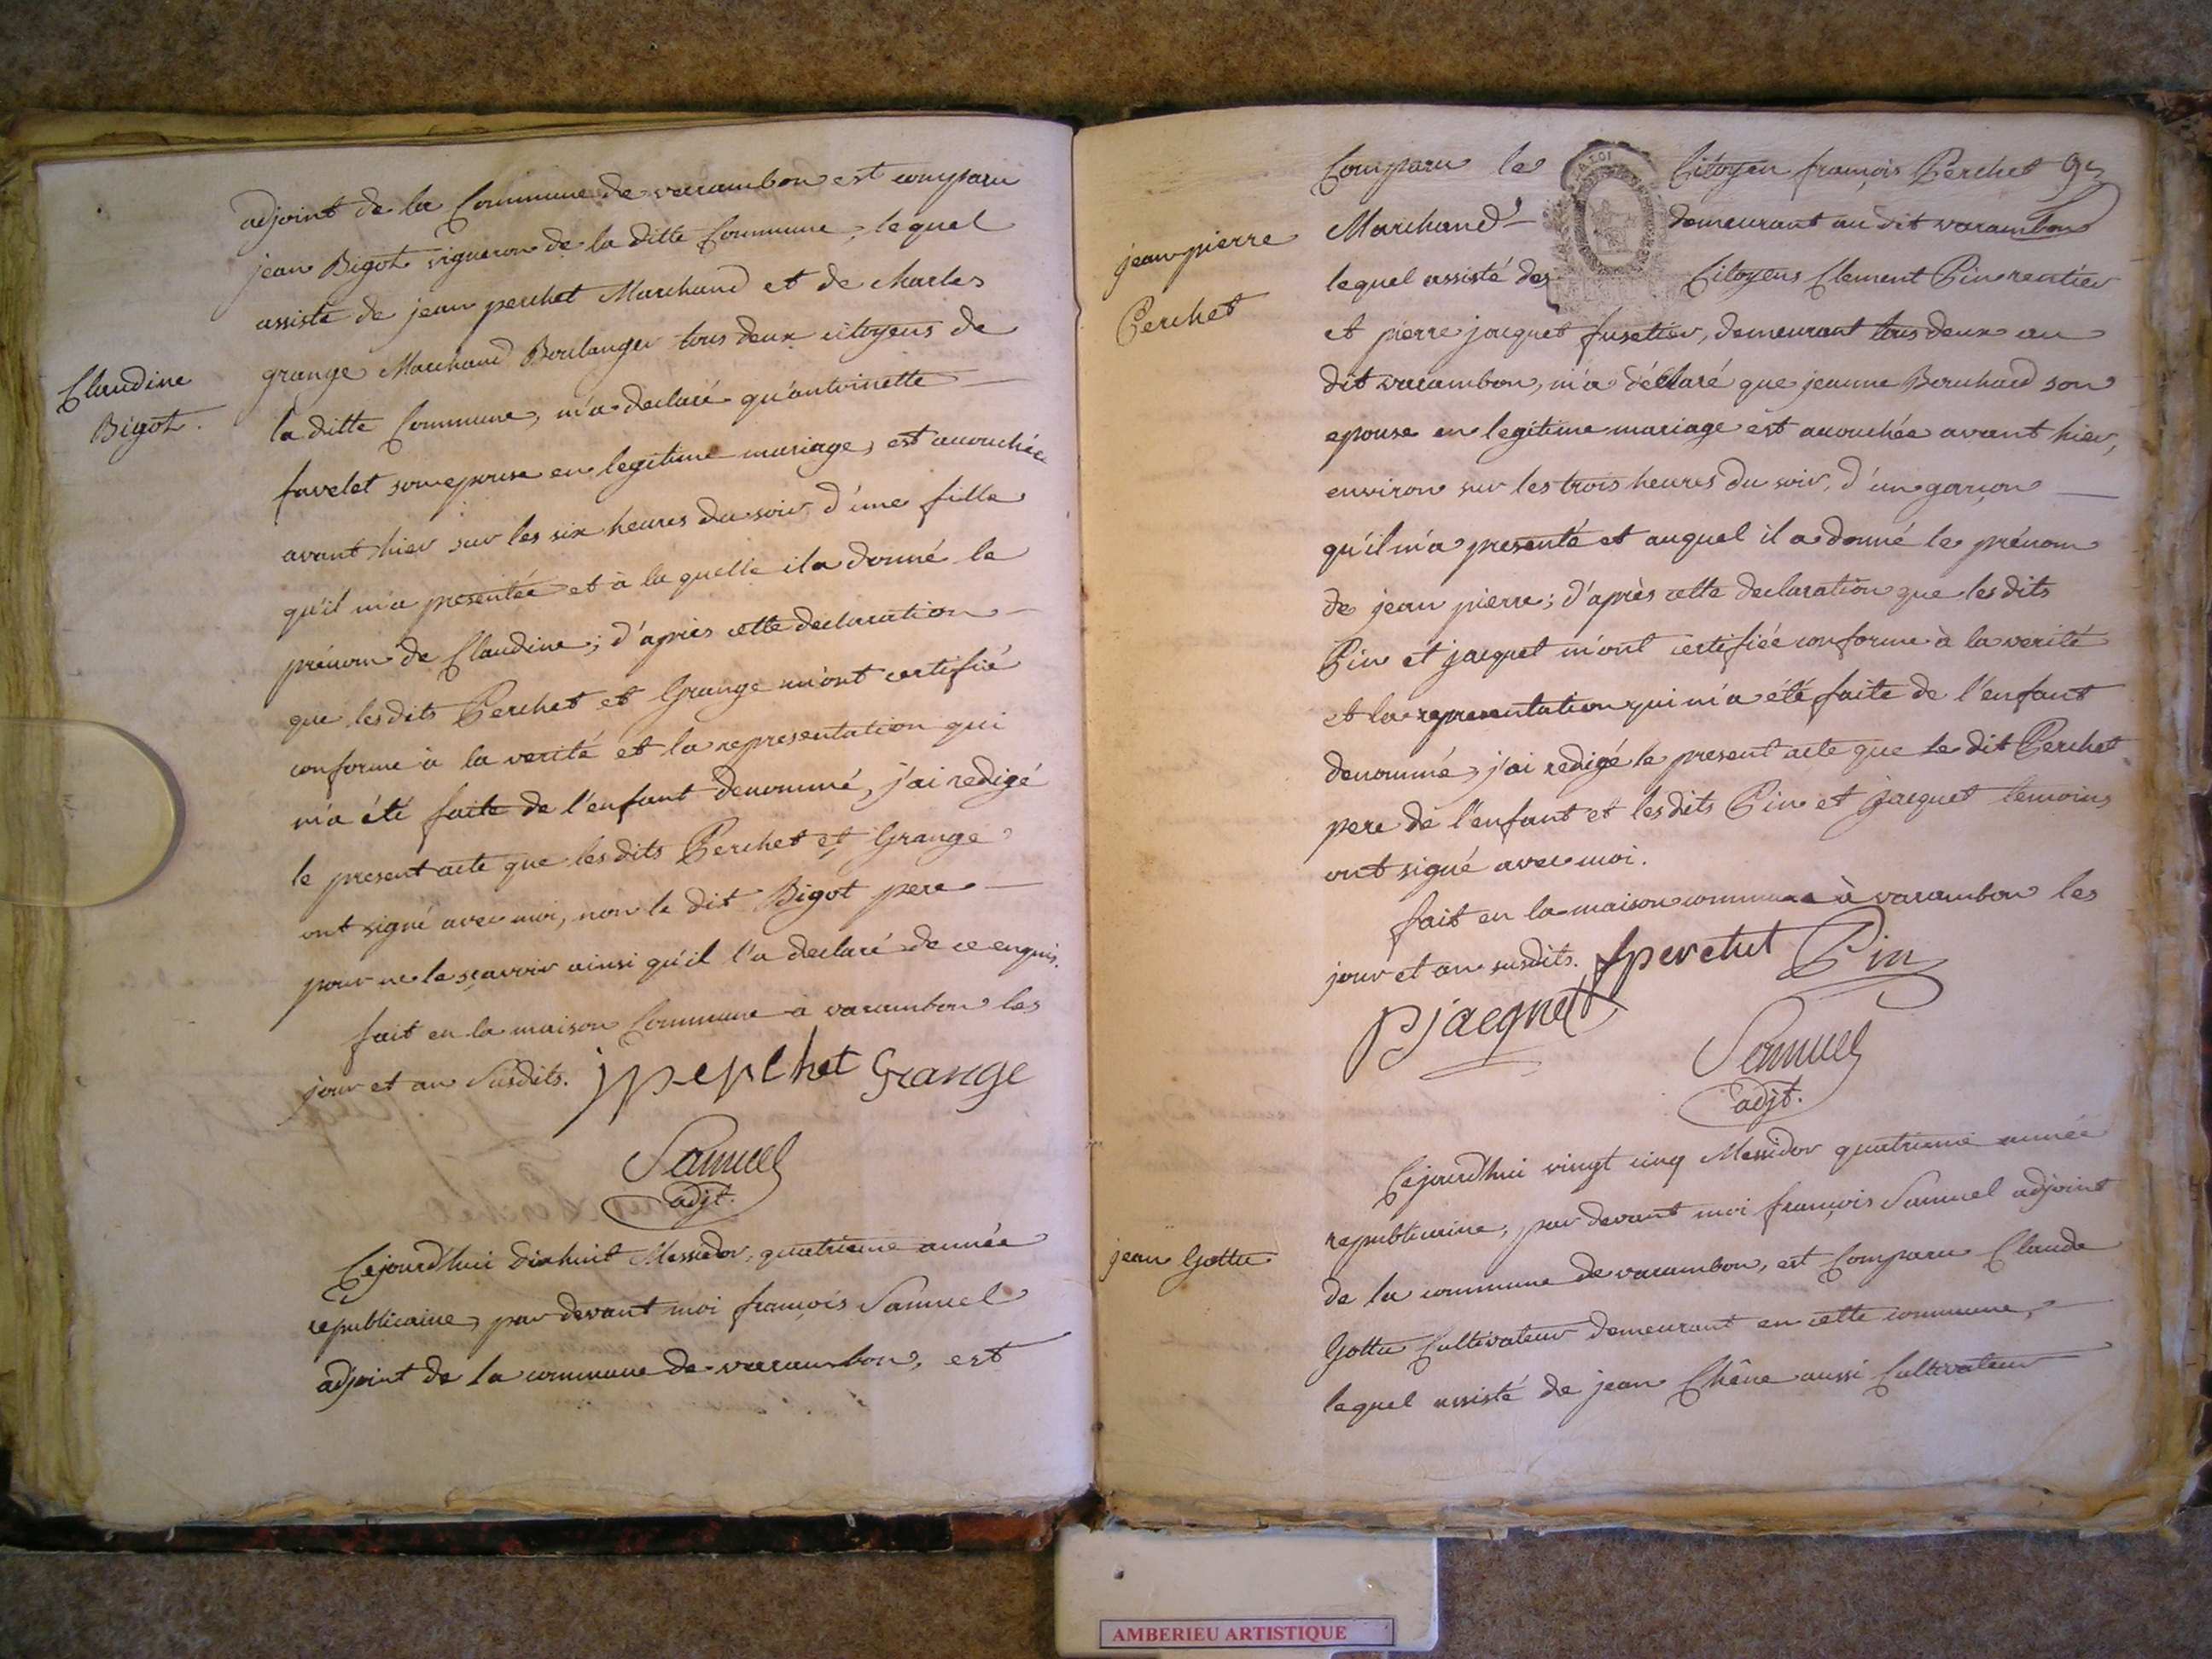 adjoint de la Commune de varambon est comparu
jean Bigot vigneron de la ditte Commune, lequel
assisté de jean perchet Marchand et de charles
grange Marchand Boulanger tous deux citoyens de
Claudine
Bigot.
la ditte Commune, m'a declaré qu'antoinette
favelet son epouse en legitime mariage, est accouchée
avant hier sur les six heures du soir d'une fille
qu'il m'a presentée et à la quelle il a donné le
prénom de Claudine; d'après cette declaration
que les dits Perchet et Grange m'ont certifié
conforme à la verité et la representation qui
m'a été faite de l'enfant denommé, j'ai redigé
le present acte que les dits Perchet et Grange
ont signé avec moi, non le dit Bigot père
pour ne le sçavoir ainsi qu'il l'a declaré de ce enquis.
fait en la maison Commune à varambon les
jour et an Susdits. jperchet Grange
Samuel
adjt.
Cejourd'hui dixhuit Messidor, quatrieme année
republicaine, par devant moi françois Samuel
adjoint de la commune de varambon, est
Comparu le Citoyen françois Perchet
LA LOI
jean pierre
Perchet
Marchand demeurant au dit varambon
lequel assisté des Citoyens Clement Pin rentier
et pierre jacquet fusettier, demeurant tous deux au
dit varambon, m'a déclaré que jeanne Bouchard son
epouse en legitime mariage est accouchée avant hier,
environ sur les trois heures du soir, d'un garçon
qu'il m'a presenté et auquel il a donné le prénom
de jean pierre; d'après cette declaration que les dits
Pin et jacquet m'ont certifiée conforme à la verité
et la representation qui m'a été faite de l'enfant
denommé, j'ai redigé le present acte que le dit Perchet
pere de l'enfant et les dits Pin et jacquet temoins,
ont signé avec moi.
fait en la maison commune à varambon les
jour et an susdits. fperchet Pin
Pjacquet
Samuel
adjt.
Cejourd'hui vingt cinq Messidor quatrieme année
republicaine, par devant moi françois Samuel adjoint
jean Gottu
de la commune de varambon, est Comparu Claude
Gottu Cultivateur demeurant en cette commune,
lequel assisté de jean Chêne aussi Cultivateur
AMBERIEU ARTISTIQUE